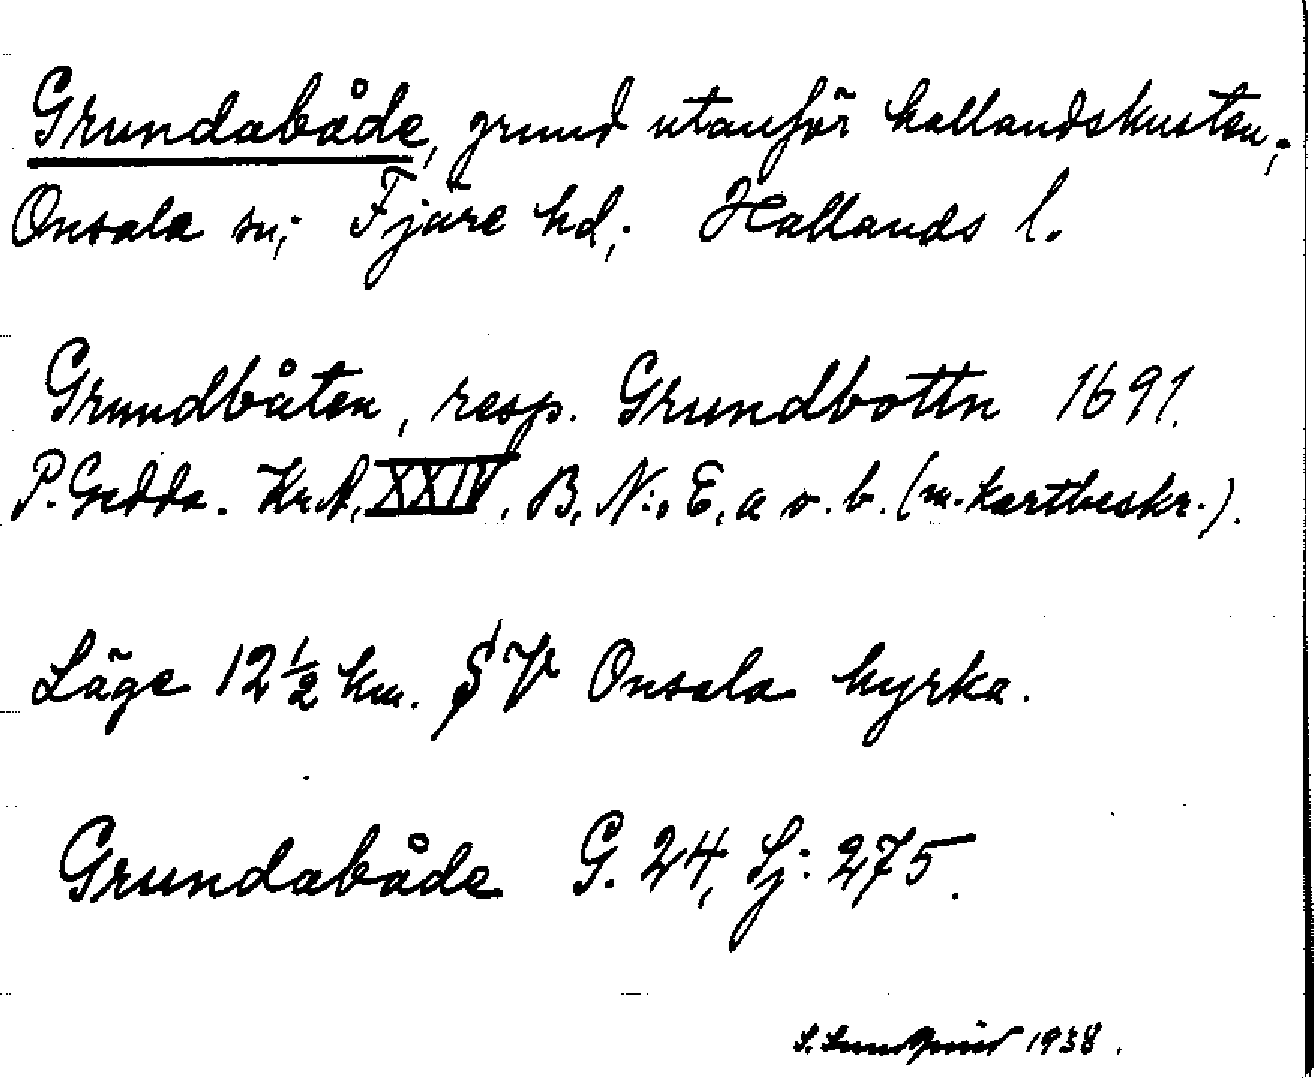 Grundabåde, grund utanför hallandskusten;
Onsala sn; Fjäre hd; Hallands l.
Grundbåten, resp. Grundbottn 1691.
P. Gedda. Kr.A. XXIV. B. N:o E, a o. b. (m. kartbeskr.).
Läge 12 1/2 km. SV Onsala kyrka.
Grundabåde G. 24, Sj: 275.
1938.